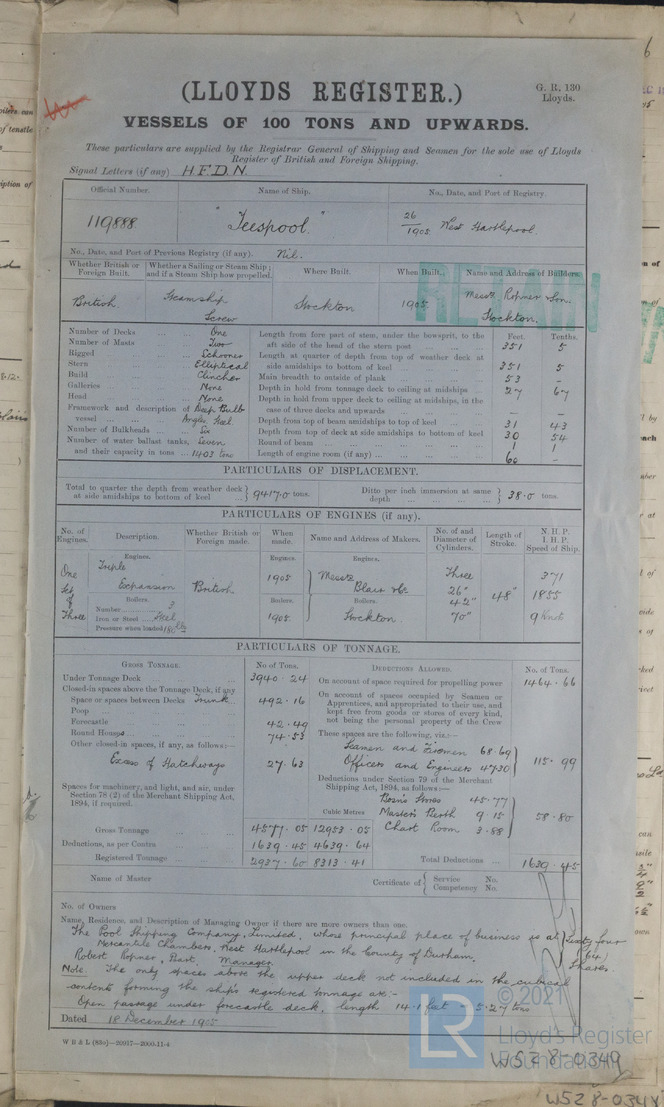 (LLOYDS REGISTER.)
G. R, 130
Lloyds.
VESSELS OF 100 TONS AND UPWARDS.
These particulars are supplied by the Registrar General of Shipping and Seamen for the sole use of Lloyds
Register of British and Foreign Shipping.
Signal Letters (if any) H.F.D.N.
Official Number. Name of Ship. No., Date, and Port of Registry
119888. "Teespool." 26/1905 West Hartlepool.
No., Date, and Port of Previous Registry (if any). Nil.
Whether British or Foreign Built. Whether a Sailing or Steam Ship; and if a Steam Ship how propelled. Where Built. When Built. Name and Address of Builders.
British. Steamship Screw Stockton 1905 Messrs. Ropner & Son. Stockton.
RETAIN
Number of Decks One
Number of Masts Two
Rigged Schooner
Stern Elliptical
Build Clincher
Galleries None
Head None
Framework and description of vessel Deep Bulb Angles, Steel.
Number of Bulkheads Six
Number of water ballast tanks, Seven
and their capacity in tons 1403 tons
Feet. Tenths.
Length from fore part of stem, under the bowsprit, to the aft side of the head of the stern post 351 5
Length at quarter of depth from top of weather deck at side amidships to bottom of keel 351 5
Main breadth to outside of plank 53 -
Depth in hold from tonnage deck to ceiling at midships 27 67
Depth in hold from upper deck to ceiling at midships, in the case of three decks and upwards - -
Depth from top of beam amidships to top of keel 31 43
Depth from top of deck at side amidships to bottom of keel 30 54
Round of beam 1 1
Length of engine room (if any) 60 -
PARTICULARS OF DISPLACEMENT.
Total to quarter the depth from weather deck at side amidships to bottom of keel } 9417.0 tons.
Ditto per inch immersion at same depth } 38.0 tons.
PARTICULARS OF ENGINES (if any).
No. of Engines. Description. Whether British or Foreign made. When made. Name and Address of Makers. No. of and Diameter of Cylinders. Length of Stroke. N. H. P. I. H. P. Speed of Ship.
One Set of Three
Engines.
Triple Expansion British 1905 Messrs Blair & Co. Stockton
Boilers.
Number 3
Iron or Steel Steel
Pressure when loaded 180 lbs
1905
Three 26" 42" 70" 48" 371 1855 9 Knots
PARTICULARS OF TONNAGE.
GROSS TONNAGE. No. of Tons.
Under Tonnage Deck 3940.24
Closed-in spaces above the Tonnage Deck, if any
Space or spaces between Decks Trunk 492.16
Poop
Forecastle 42.49
Round Houses 74.53
Other closed-in spaces, if any, as follows:—
Excess of Hatchways 27.63
Spaces for machinery, and light, and air, under Section 78 (2) of the Merchant Shipping Act, 1894, if required.
Cubic Metres
Gross Tonnage 4577.05 12953.05
Deductions, as per Contra 1639.45 4639.64
Registered Tonnage 2937.60 8313.41
DEDUCTIONS ALLOWED. No. of Tons.
On account of space required for propelling power 1464.66
On account of spaces occupied by Seamen or Apprentices, and appropriated to their use, and kept free from goods or stores of every kind, not being the personal property of the Crew
These spaces are the following, viz.:—
Seamen and Firemen 68.69
Officers and Engineers 47.30 } 115.99
Deductions under Section 79 of the Merchant Shipping Act, 1894, as follows:—
Bosns Stores 45.77
Master's Berth 9.15
Chart Room 3.88 } 58.80
Total Deductions 1639.45
Name of Master Certificate of { Service No.
Competency No.
No. of Owners
Name, Residence, and Description of Managing Owner if there are more owners than one.
The Pool Shipping Company, Limited, whose principal place of business is at } Sixty four
Mercantile Chambers, West Hartlepool in the County of Durham. (64)
Robert Ropner, Manager. Shares.
Note. The only spaces above the upper deck not included in the cubical
content forming the ship's registered tonnage are:-
Open passage under forecastle deck, length 14.1 feet = 5.27 tons
Dated 18 December 1905
W B & L (88o)—20017—2000-11-4
LR
© 2021
Lloyd's Register
Foundation
W528-0349
W528-0349